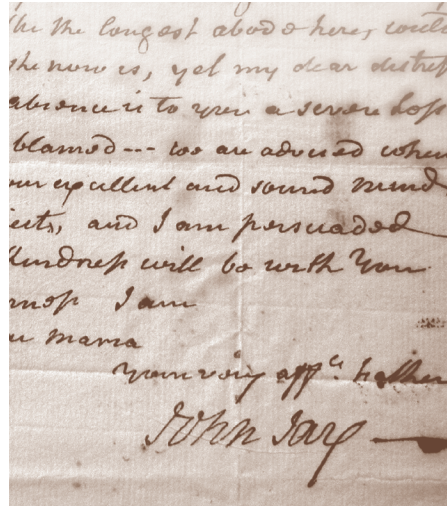 the longest abode here, could
she now is, yet my dear distress
absence is to you a severe loss
blamed --- we are advised when
our excellent and sound mind
jects, and I am persuaded
Kindness will be with You
I am
mama
Your very affte. father
John Jay